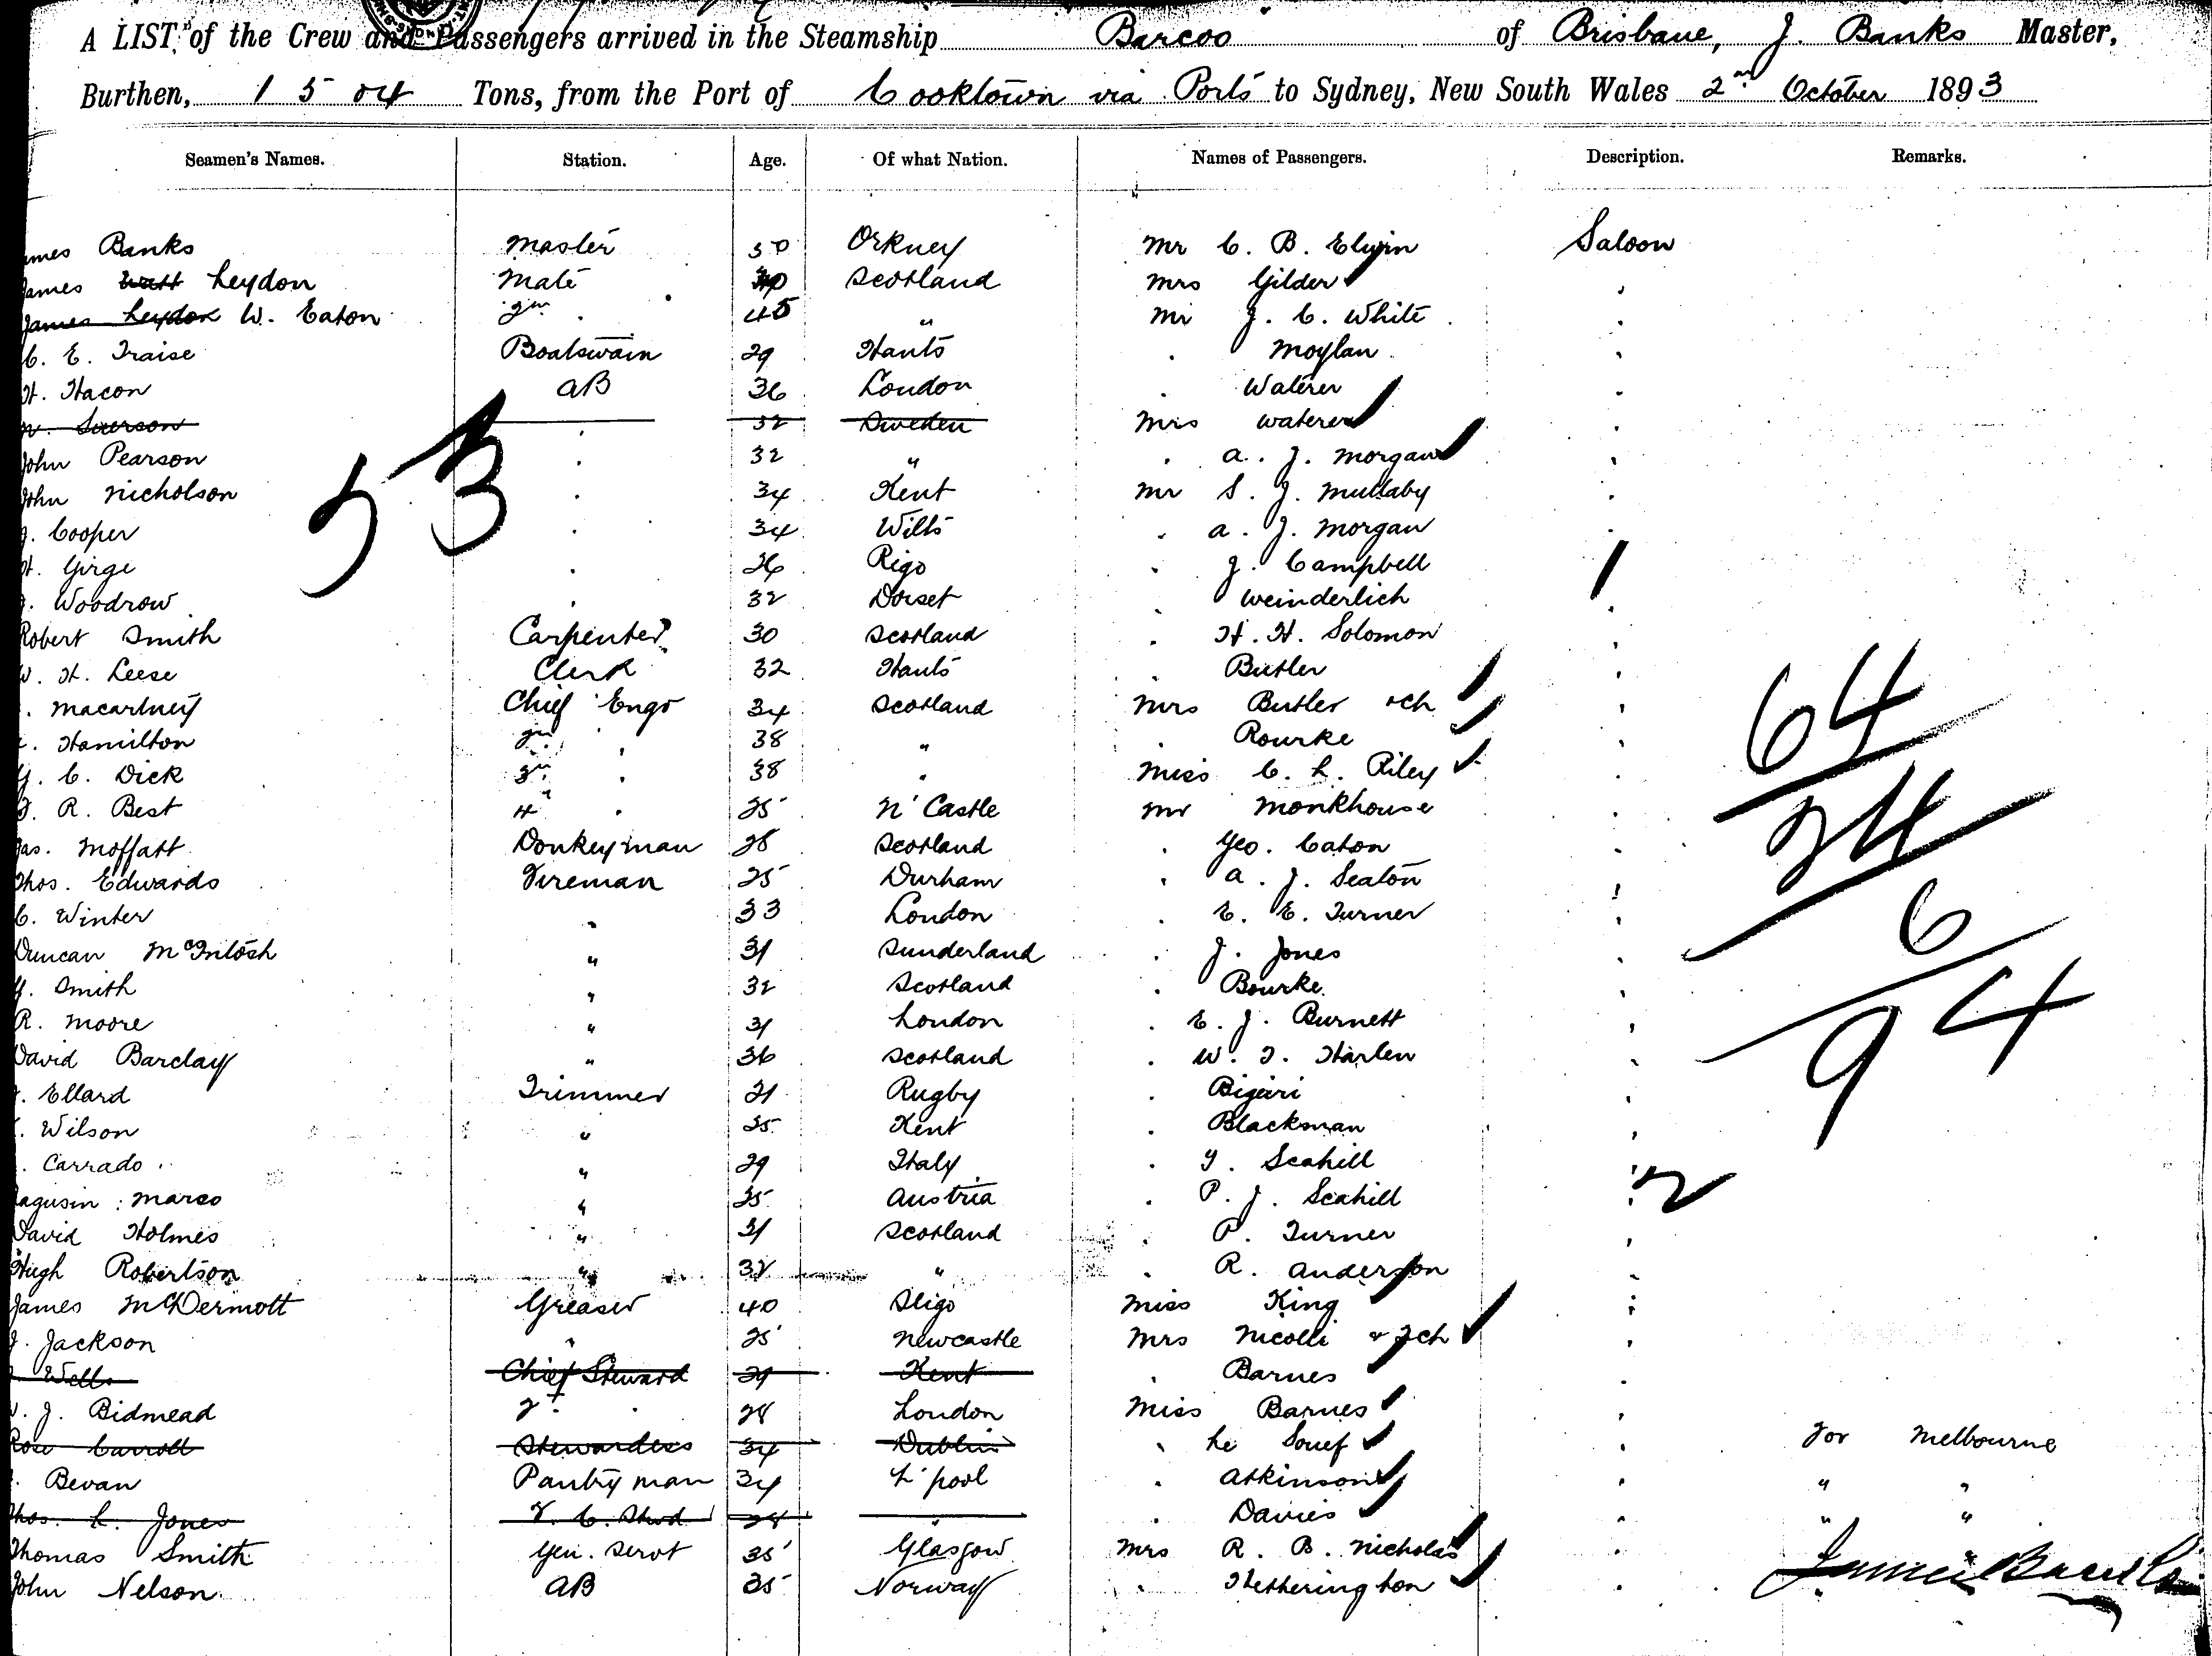 A LIST of the Crew and Passengers arrived in the Steamship Barcoo of Brisbane, J. Banks Master,
Burthen, 1504 Tons, from the Port of Cooktown via Ports to Sydney, New South Wales 2nd October 1893
Seamen's Names. Station. Age. Of what Nation. Names of Passengers. Description. Remarks.
ames Banks Master 50 Orkney Mr C. B. Elgin Saloon
James Leydon Mate Scotland Mrs Gilder
James Leydon W. Eaton 2nd 45 " Mr J. C. White
C. E. Traise Boatswain 29 Hants . Moylan
H. Hacon AB 36 London . Waterer
32 Sweden Mrs Waterer
John Pearson . 32 " . A. J. Morgan
John Nicholson . 34 Kent Mr S. J. Mullaby
J. Cooper . 34 Wilts . A. J. Morgan
H. Girge . 26 Rigo . J. Campbell
. Woodrow . 32 Dorset . Weinderlich
Robert Smith Carpenter 30 Scotland . H. H. Solomon
W. H. Leese Clerk 32 Hants . Butler
. Macartney Chief Engr 34 Scotland Mrs Butler & ch
. Hamilton 2nd . 38 " . Rourke
G. C. Dick 3rd . 38 " Miss C. L. Riley
J. R. Best 4 . 25 N'Castle Mr Monkhouse
Jas. Moffatt Donkeyman 28 Scotland . Geo. Caton
Thos. Edwards Fireman 25 Durham . A. J. Seaton
C. Winter " 33 London . E. E. Turner
Duncan McIntosh " 31 Sunderland . J. Jones
Y. Smith " 32 Scotland . Bourke
R. Moore " 31 London . E. J. Burnett
David Barclay " 36 Scotland . W. T. Harlen
. Ellard Trimmer 21 Rugby . Bigari
. Wilson " 25 Kent . Blackman
. Carrado " 29 Italy . Y. Scahill
agusin Marco " 25 Austria . P. J. Scahill
David Holmes " 31 Scotland . P. Turner
Hugh Robertson " 32 " . R. Anderson
James McDermott Greaser 40 Sligo Miss King
J. Jackson " 25 Newcastle Mrs Nicolli & 2ch
. Wells Chief Steward 29 Kent . Barnes
. J. Bidmead 2nd . 28 London Miss Barnes
Rose Carroll Stewardess 34 Dublin . Le Souef For Melbourne
. Bevan Pantryman 34 L'pool . Atkinson " "
Thos. L. Jones 28 " . Davies " "
Thomas Smith Gen. Servt 35 Glasgow Mrs R. B. Nicholas
John Nelson AB 25 Norway . Hetherington
James Banks
53
64
24
6
94
2